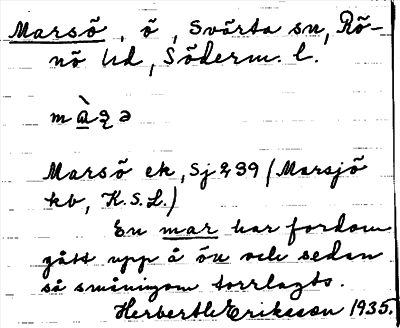 Marsö, ö, Svärta sn, Rö-
nö hd, Söderm. l.
màʂə
Marsö ek, Sj 239 (Marsjö
kb, K.S.L.)
En mar har fordom
gått upp å ön och sedan
så småningom torrlagts.
Herberth Eriksson 1935.